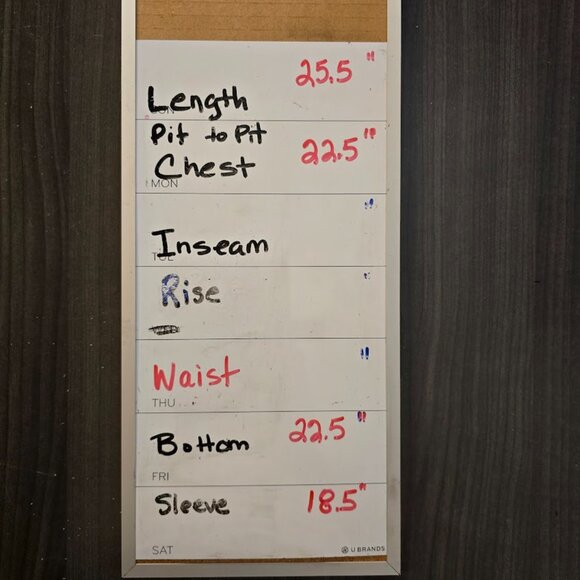 25.5"
Length
Pit to Pit
Chest 22.5"
MON
"
Inseam
"
Rise
"
Waist
THU
Bottom 22.5"
FRI
Sleeve 18.5"
SAT U BRANDS